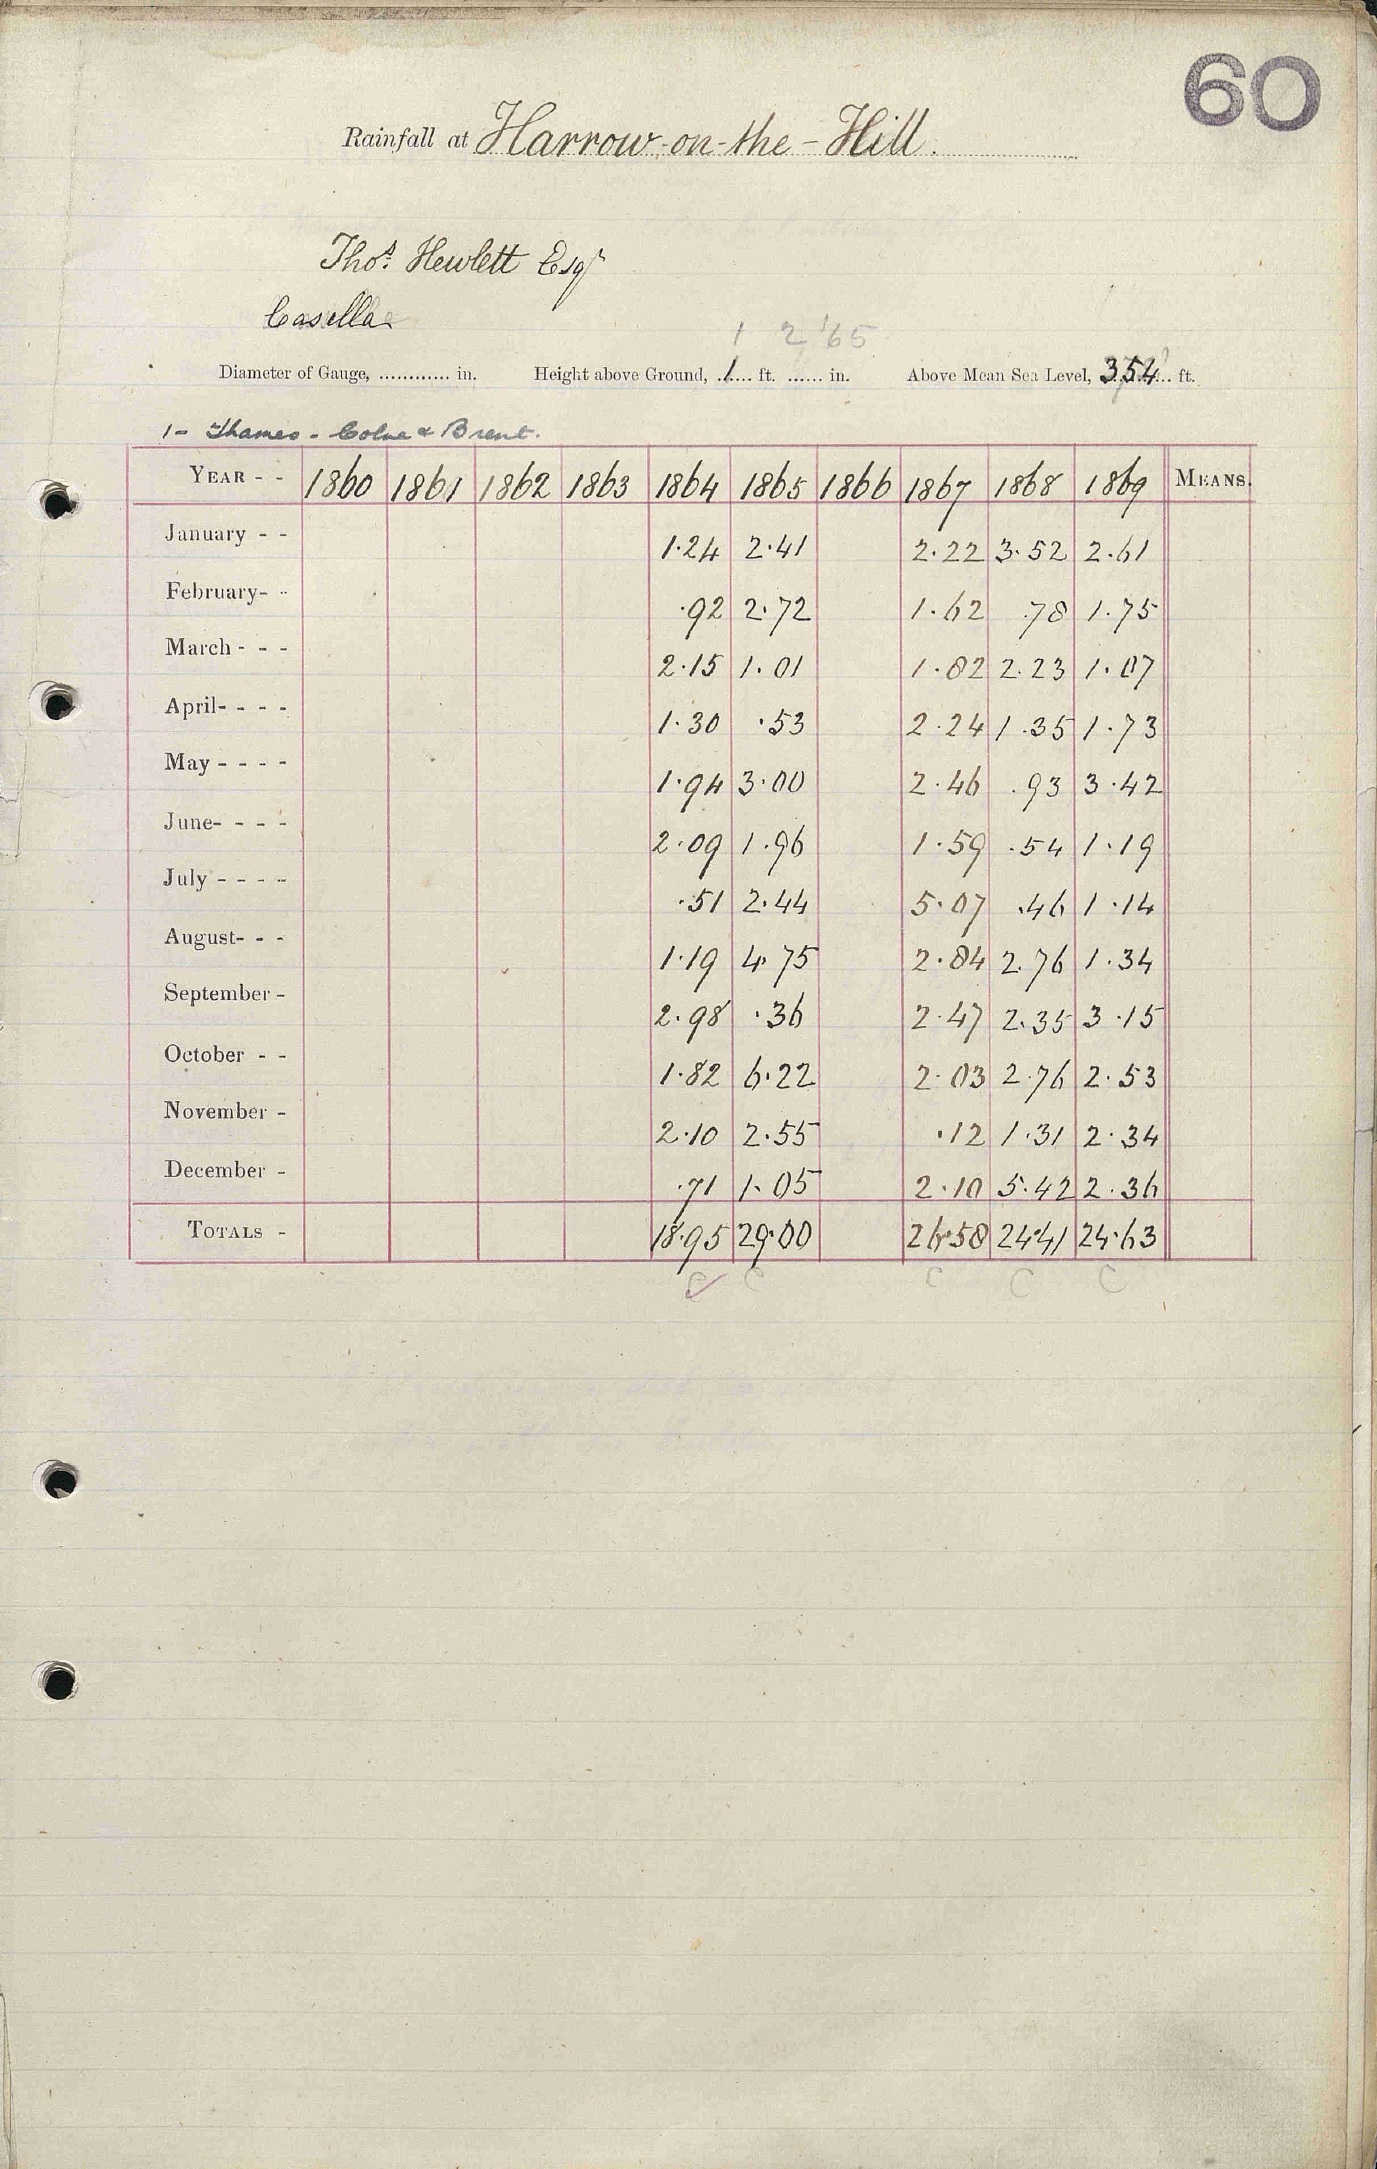 60
Rainfall at Harrow-on-the-Hill.
Thos. Hewlett Esqr
Casella
1 2 '65
Diameter of Gauge, ............ in. Height above Ground, 1 ft. ...... in. Above Mean Sea Level, 354 ft.
1- Thames - Colne & Brent.
YEAR - - 1860 1861 1862 1863 1864 1865 1866 1867 1868 1869 MEANS.
January - - 1.24 2.41 2.22 3.52 2.61
February- - .92 2.72 1.62 .78 1.75
March - - - 2.15 1.01 1.82 2.23 1.07
April- - - - 1.30 .53 2.24 1.35 1.73
May - - - - 1.94 3.00 2.46 .93 3.42
June- - - - 2.09 1.96 1.59 .54 1.19
July - - - - .51 2.44 5.07 .46 1.14
August- - - 1.19 4.75 2.84 2.76 1.34
September - 2.98 .36 2.47 2.35 3.15
October - - 1.82 6.22 2.03 2.76 2.53
November - 2.10 2.55 .12 1.31 2.34
December - .71 1.05 2.10 5.42 2.36
TOTALS - 18.95 29.00 26.58 24.41 24.63
C C C C C